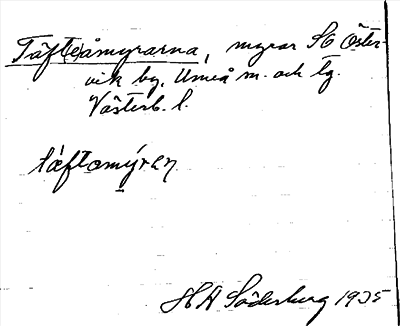 Täft(e)åmyrarna, myrar SO Öster-
vik by, Umeå m. och tg.
Västerb. l.
táftomýrɛn
H A Söderberg 1935